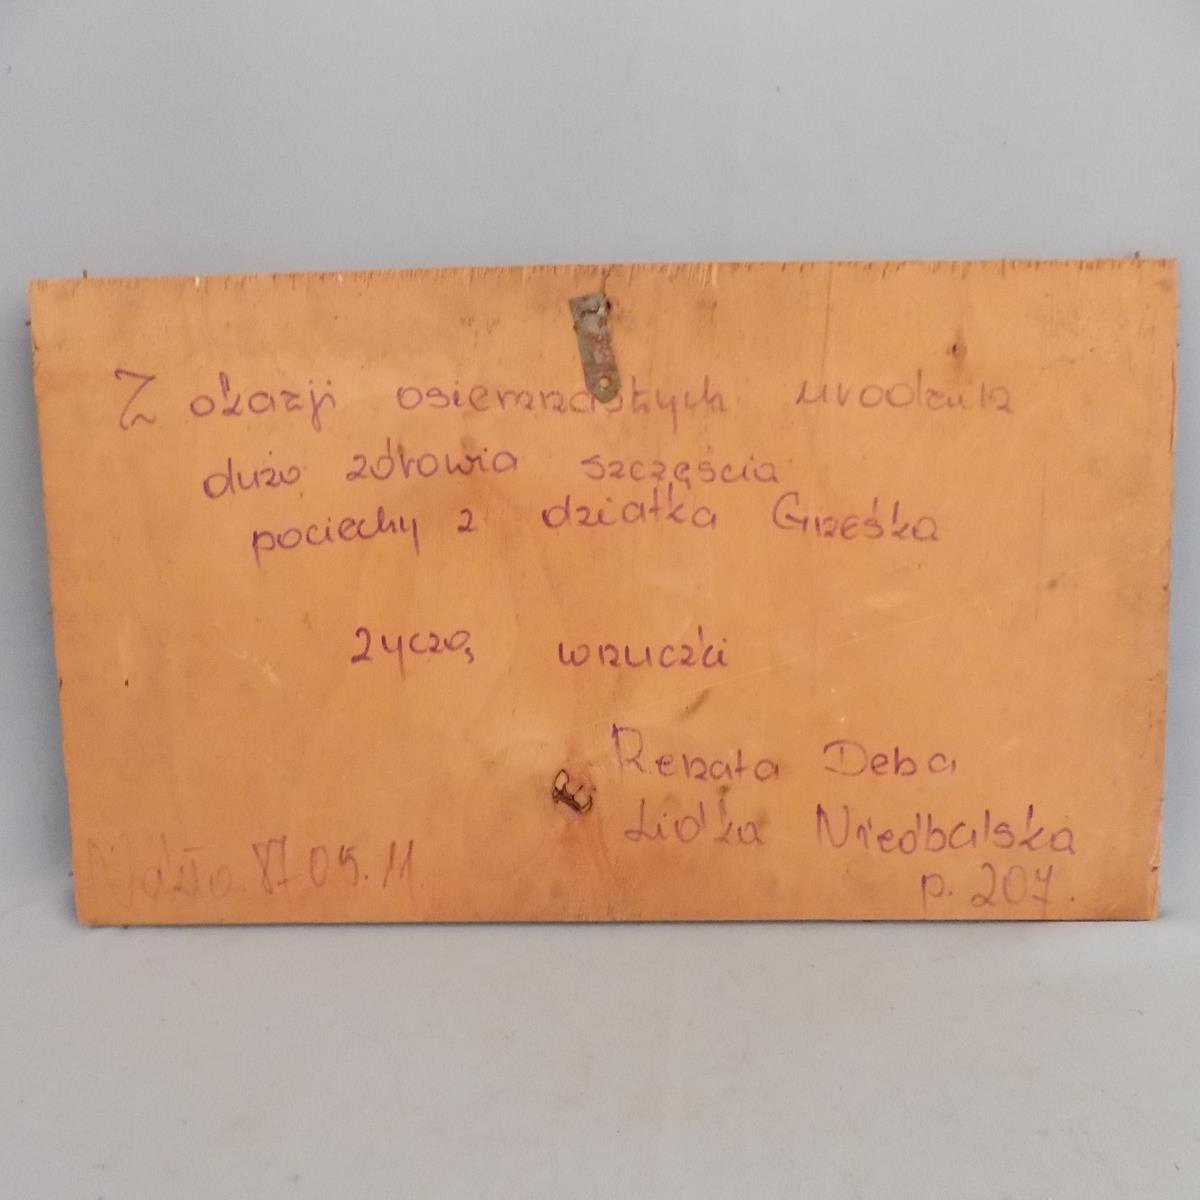 Z okazji osiemnastych urodzin
dużo zdrowia szczęścia
pociechy z dziatka Grześka
życzą wnuczki
Renata Deba
Lidka Niedbalska
p. 207.
87 05. 11.